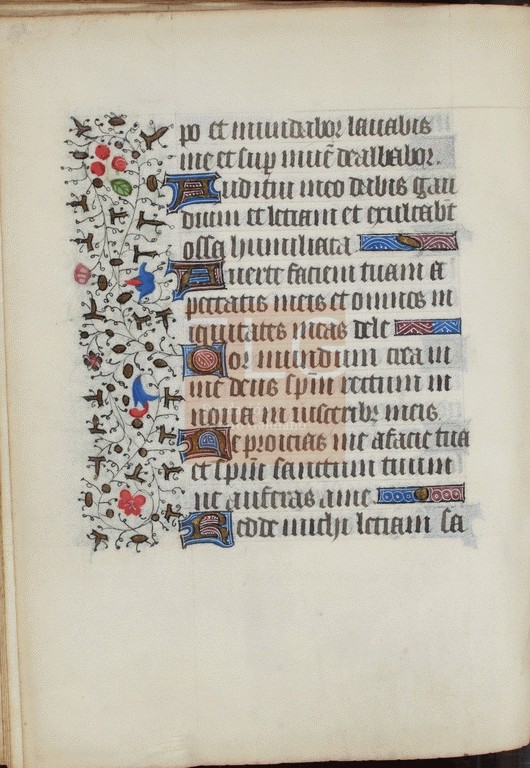 po et mundabor lavabis
me et sup nivē dealbabor.
Auditui meo dabis gau
dium et leticiam et exultabt
ossa humiliata
Averte faciem tuam a
peccatis meis et omnes in
iquitates meas dele
Cor mundum crea in
me deus spm̄ rectum in
nova in visceribȝ meis
Ne proicias me a facie tua
et spm̄ sanctum tuum
ne auferas a me
Redde michi leticiam sa